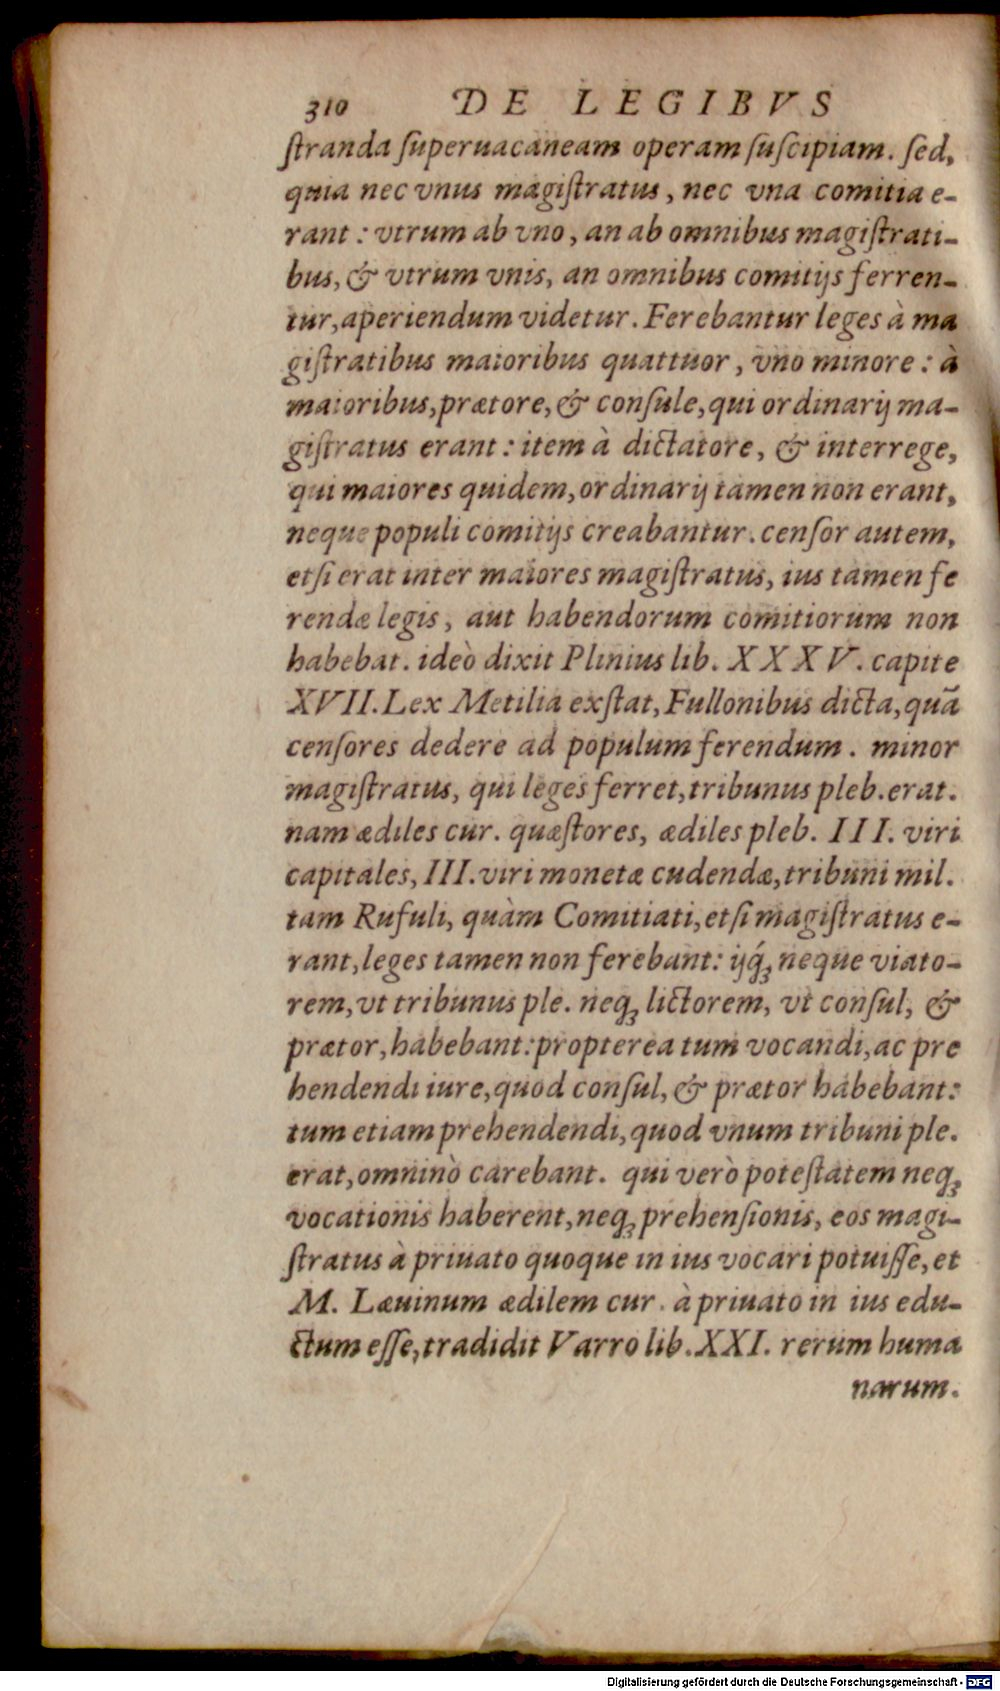 310 DE LEGIBVS
ſtranda ſuperuacaneam operam ſuſcipiam. ſed,
quia nec vnus magiſtratus, nec vna comitia e-
rant: vtrum ab vno, an ab omnibus magiſtrati-
bus, & vtrum vnis, an omnibus comitijs ferren-
tur, aperiendum videtur. Ferebantur leges à ma
giſtratibus maioribus quattuor, vno minore: à
maioribus, prætore, & conſule, qui ordinarij ma-
giſtratus erant: item à dictatore, & interrege,
qui maiores quidem, ordinarij tamen non erant,
neque populi comitijs creabantur. cenſor autem,
etſi erat inter maiores magiſtratus, ius tamen fe
rendæ legis, aut habendorum comitiorum non
habebat. ideò dixit Plinius lib. XXXV. capite
XVII. Lex Metilia exſtat, Fullonibus dicta, quā
cenſores dedere ad populum ferendum. minor
magiſtratus, qui leges ferret, tribunus pleb. erat.
nam ædiles cur. quæſtores, ædiles pleb. III. viri
capitales, III. viri monetæ cudendæ, tribuni mil.
tam Rufuli, quàm Comitiati, etſi magiſtratus e-
rant, leges tamen non ferebant: ijq́; neque viato-
rem, vt tribunus ple. neq; lictorem, vt conſul, &
prætor, habebant: propterea tum vocandi, ac pre
hendendi iure, quod conſul, & prætor habebant:
tum etiam prehendendi, quod vnum tribuni ple.
erat, omninò carebant. qui verò poteſtatem neq;
vocationis haberent, neq; prehenſionis, eos magi-
ſtratus à priuato quoque in ius vocari potuiſſe, et
M. Læuinum ædilem cur. à priuato in ius edu-
ctum eſſe, tradidit Varro lib. XXI. rerum huma
narum.
Digitalisierung gefördert durch die Deutsche Forschungsgemeinschaft - DFG